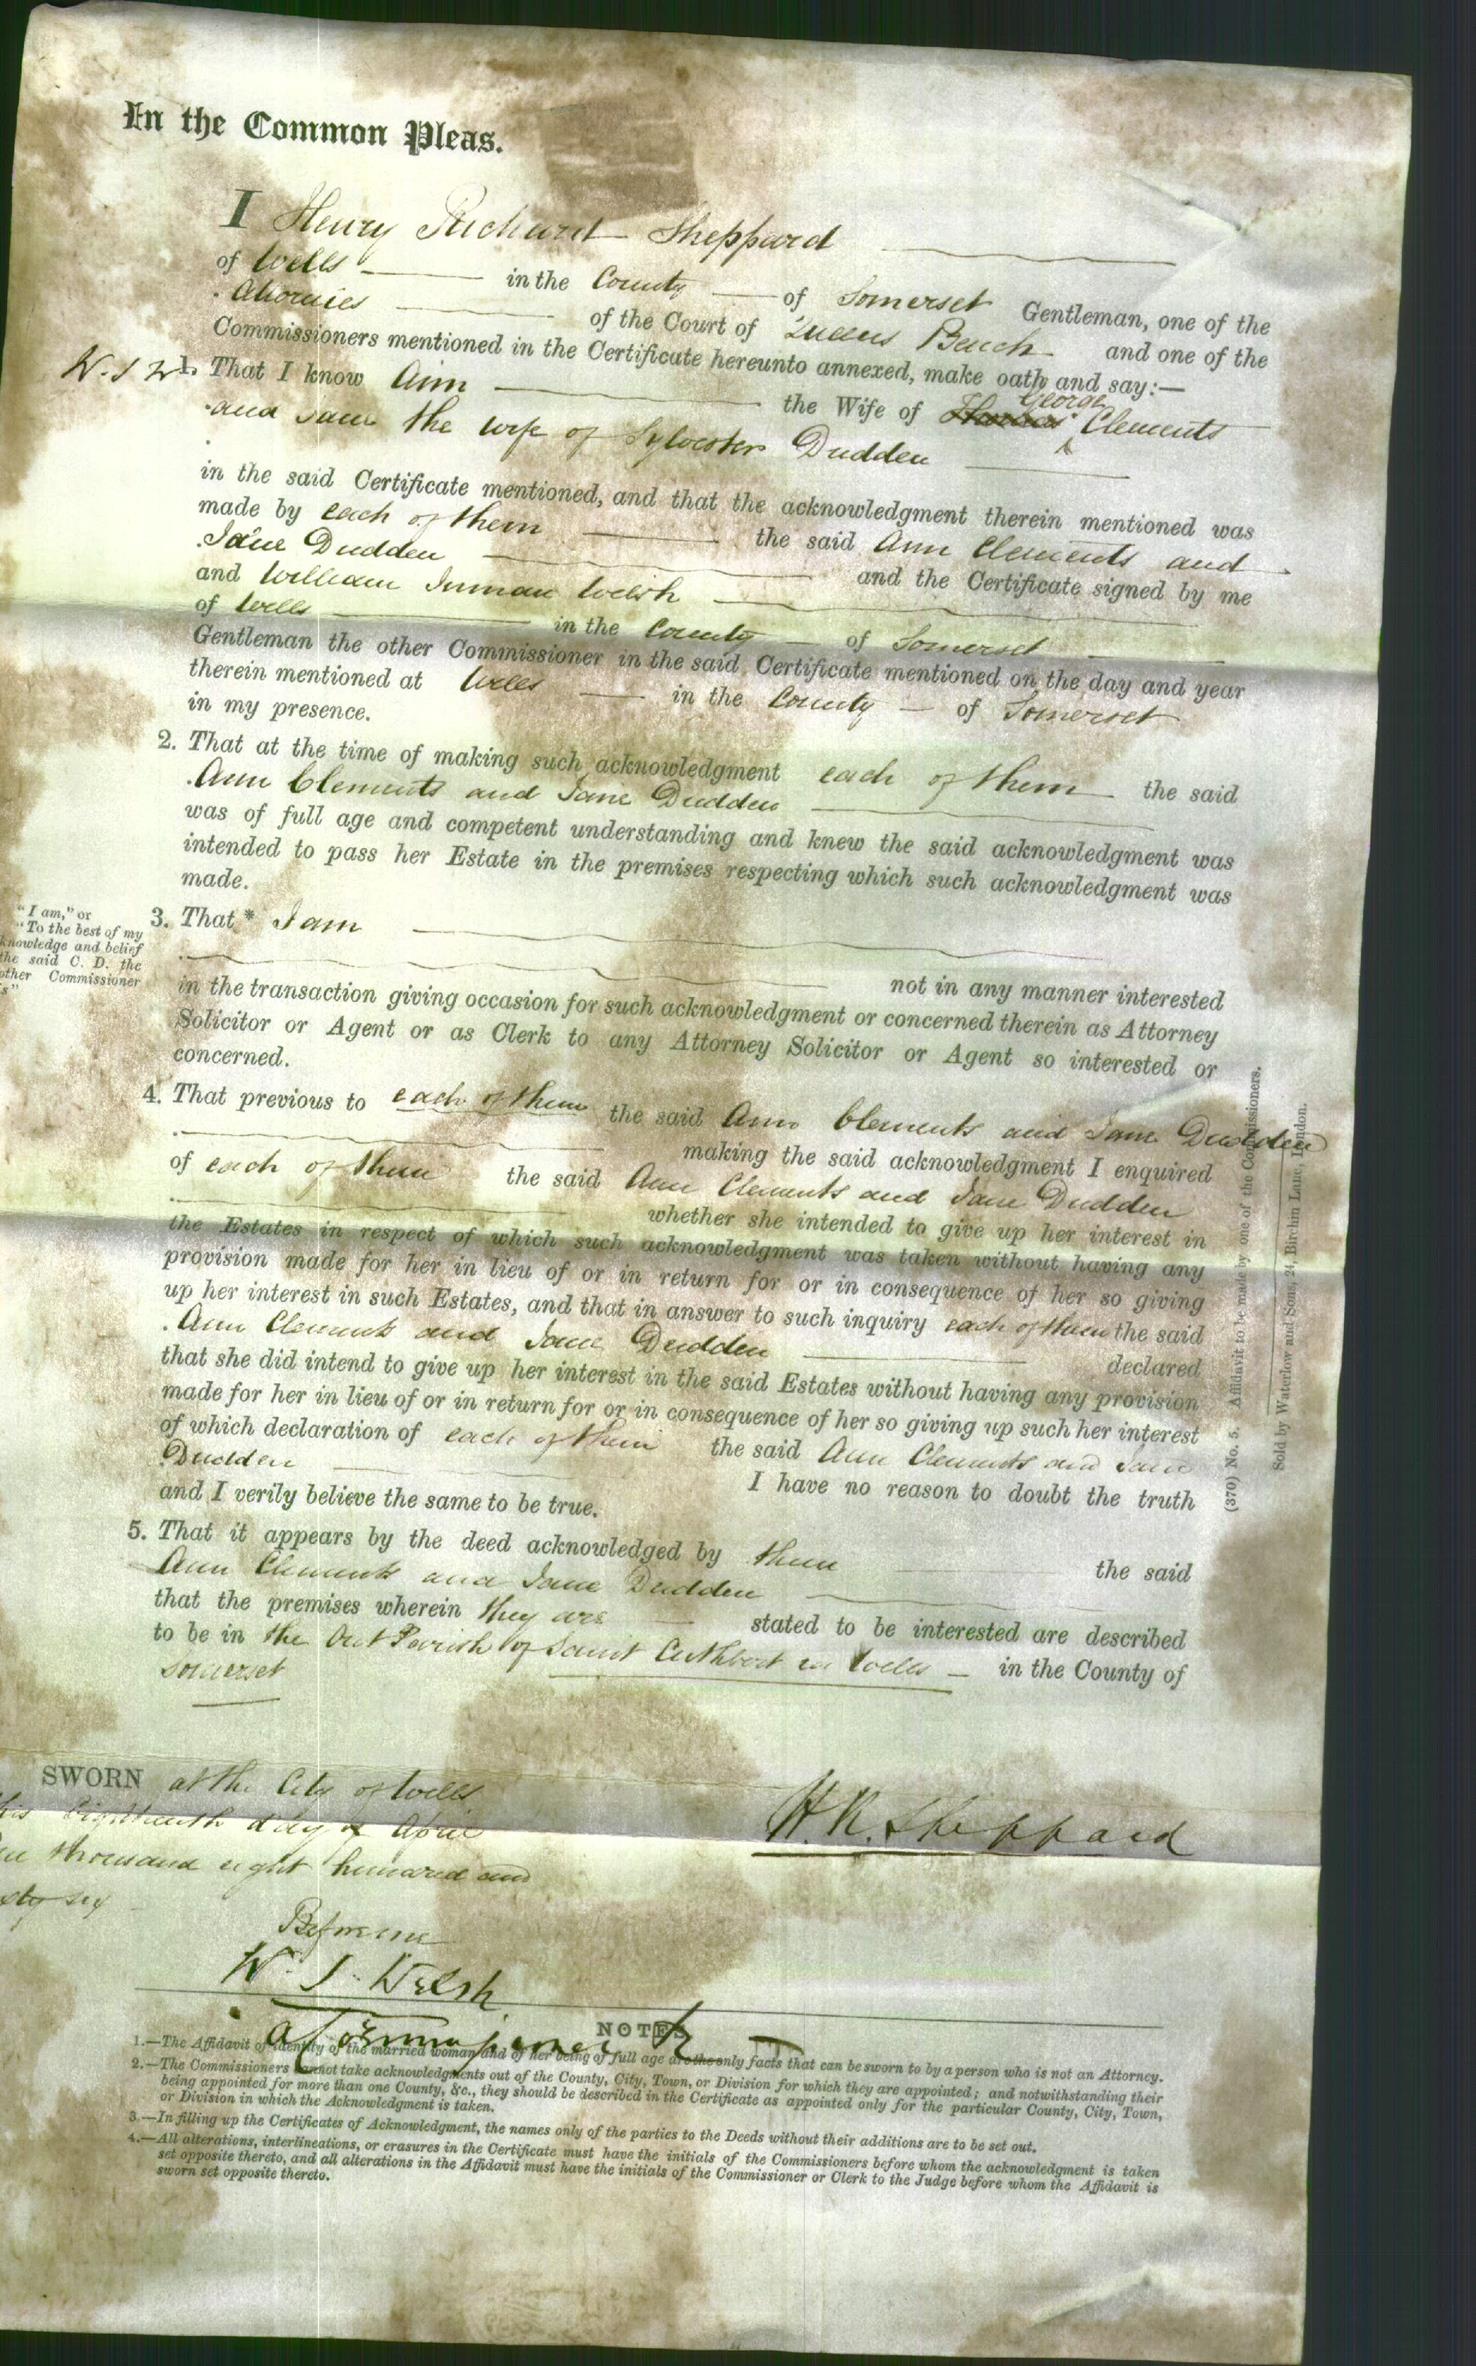 In the Common Pleas.
I Henry Richard Sheppard
of Wells in the County of Somerset Gentleman, one of the
Attornies of the Court of Queens Bench and one of the
Commissioners mentioned in the Certificate hereunto annexed, make oath and say:—
W. I W 1. That I know Ann the Wife of George Clements
and Jane the wife of Sylvester Dudden
in the said Certificate mentioned, and that the acknowledgment therein mentioned was
made by each of them the said Ann Clements and
Jane Dudden and the Certificate signed by me
and William Inman Welsh
of Wells in the County of Somerset
Gentleman the other Commissioner in the said Certificate mentioned on the day and year
therein mentioned at Wells in the County of Somerset
in my presence.
2. That at the time of making such acknowledgment each of them the said
Ann Clements and Jane Dudden
was of full age and competent understanding and knew the said acknowledgment was
intended to pass her Estate in the premises respecting which such acknowledgment was
made.
"I am," or
"To the best of my
knowledge and belief
the said C. D. the
other Commissioner
is"
3. That * I am
not in any manner interested
in the transaction giving occasion for such acknowledgment or concerned therein as Attorney
Solicitor or Agent or as Clerk to any Attorney Solicitor or Agent so interested or
concerned.
4. That previous to each of them the said Ann Clements and Jane Dudden
making the said acknowledgment I enquired
of each of them the said Ann Clements and Jane Dudden
whether she intended to give up her interest in
the Estates in respect of which such acknowledgment was taken without having any
provision made for her in lieu of or in return for or in consequence of her so giving
up her interest in such Estates, and that in answer to such inquiry each of them the said
Ann Clements and Jane Dudden declared
that she did intend to give up her interest in the said Estates without having any provision
made for her in lieu of or in return for or in consequence of her so giving up such her interest
of which declaration of each of them the said Ann Clements and Jane
Dudden I have no reason to doubt the truth
and I verily believe the same to be true.
5. That it appears by the deed acknowledged by them the said
Ann Clements and Jane Dudden
that the premises wherein they are stated to be interested are described
to be in the Out Parish of Saint Cuthbert in Wells in the County of
Somerset
(370) No. 5. Affidavit to be made by one of the Commissioners.
Sold by Waterlow and Sons, 24, Birchin Lane, London.
SWORN at the City of Wells
this Eighteenth day of April
thousand eight hundred and
six
Before me
H. R. Sheppard
W. I. Welsh
a Commissioner &c
NOTES
1.—The Affidavit of identity of the married woman and of her being of full age are the only facts that can be sworn to by a person who is not an Attorney.
2.—The Commissioners cannot take acknowledgments out of the County, City, Town, or Division for which they are appointed; and notwithstanding their
being appointed for more than one County, &c., they should be described in the Certificate as appointed only for the particular County, City, Town,
or Division in which the Acknowledgment is taken.
3.—In filling up the Certificates of Acknowledgment, the names only of the parties to the Deeds without their additions are to be set out.
4.—All alterations, interlineations, or erasures in the Certificate must have the initials of the Commissioners before whom the acknowledgment is taken
set opposite thereto, and all alterations in the Affidavit must have the initials of the Commissioner or Clerk to the Judge before whom the Affidavit is
sworn set opposite thereto.